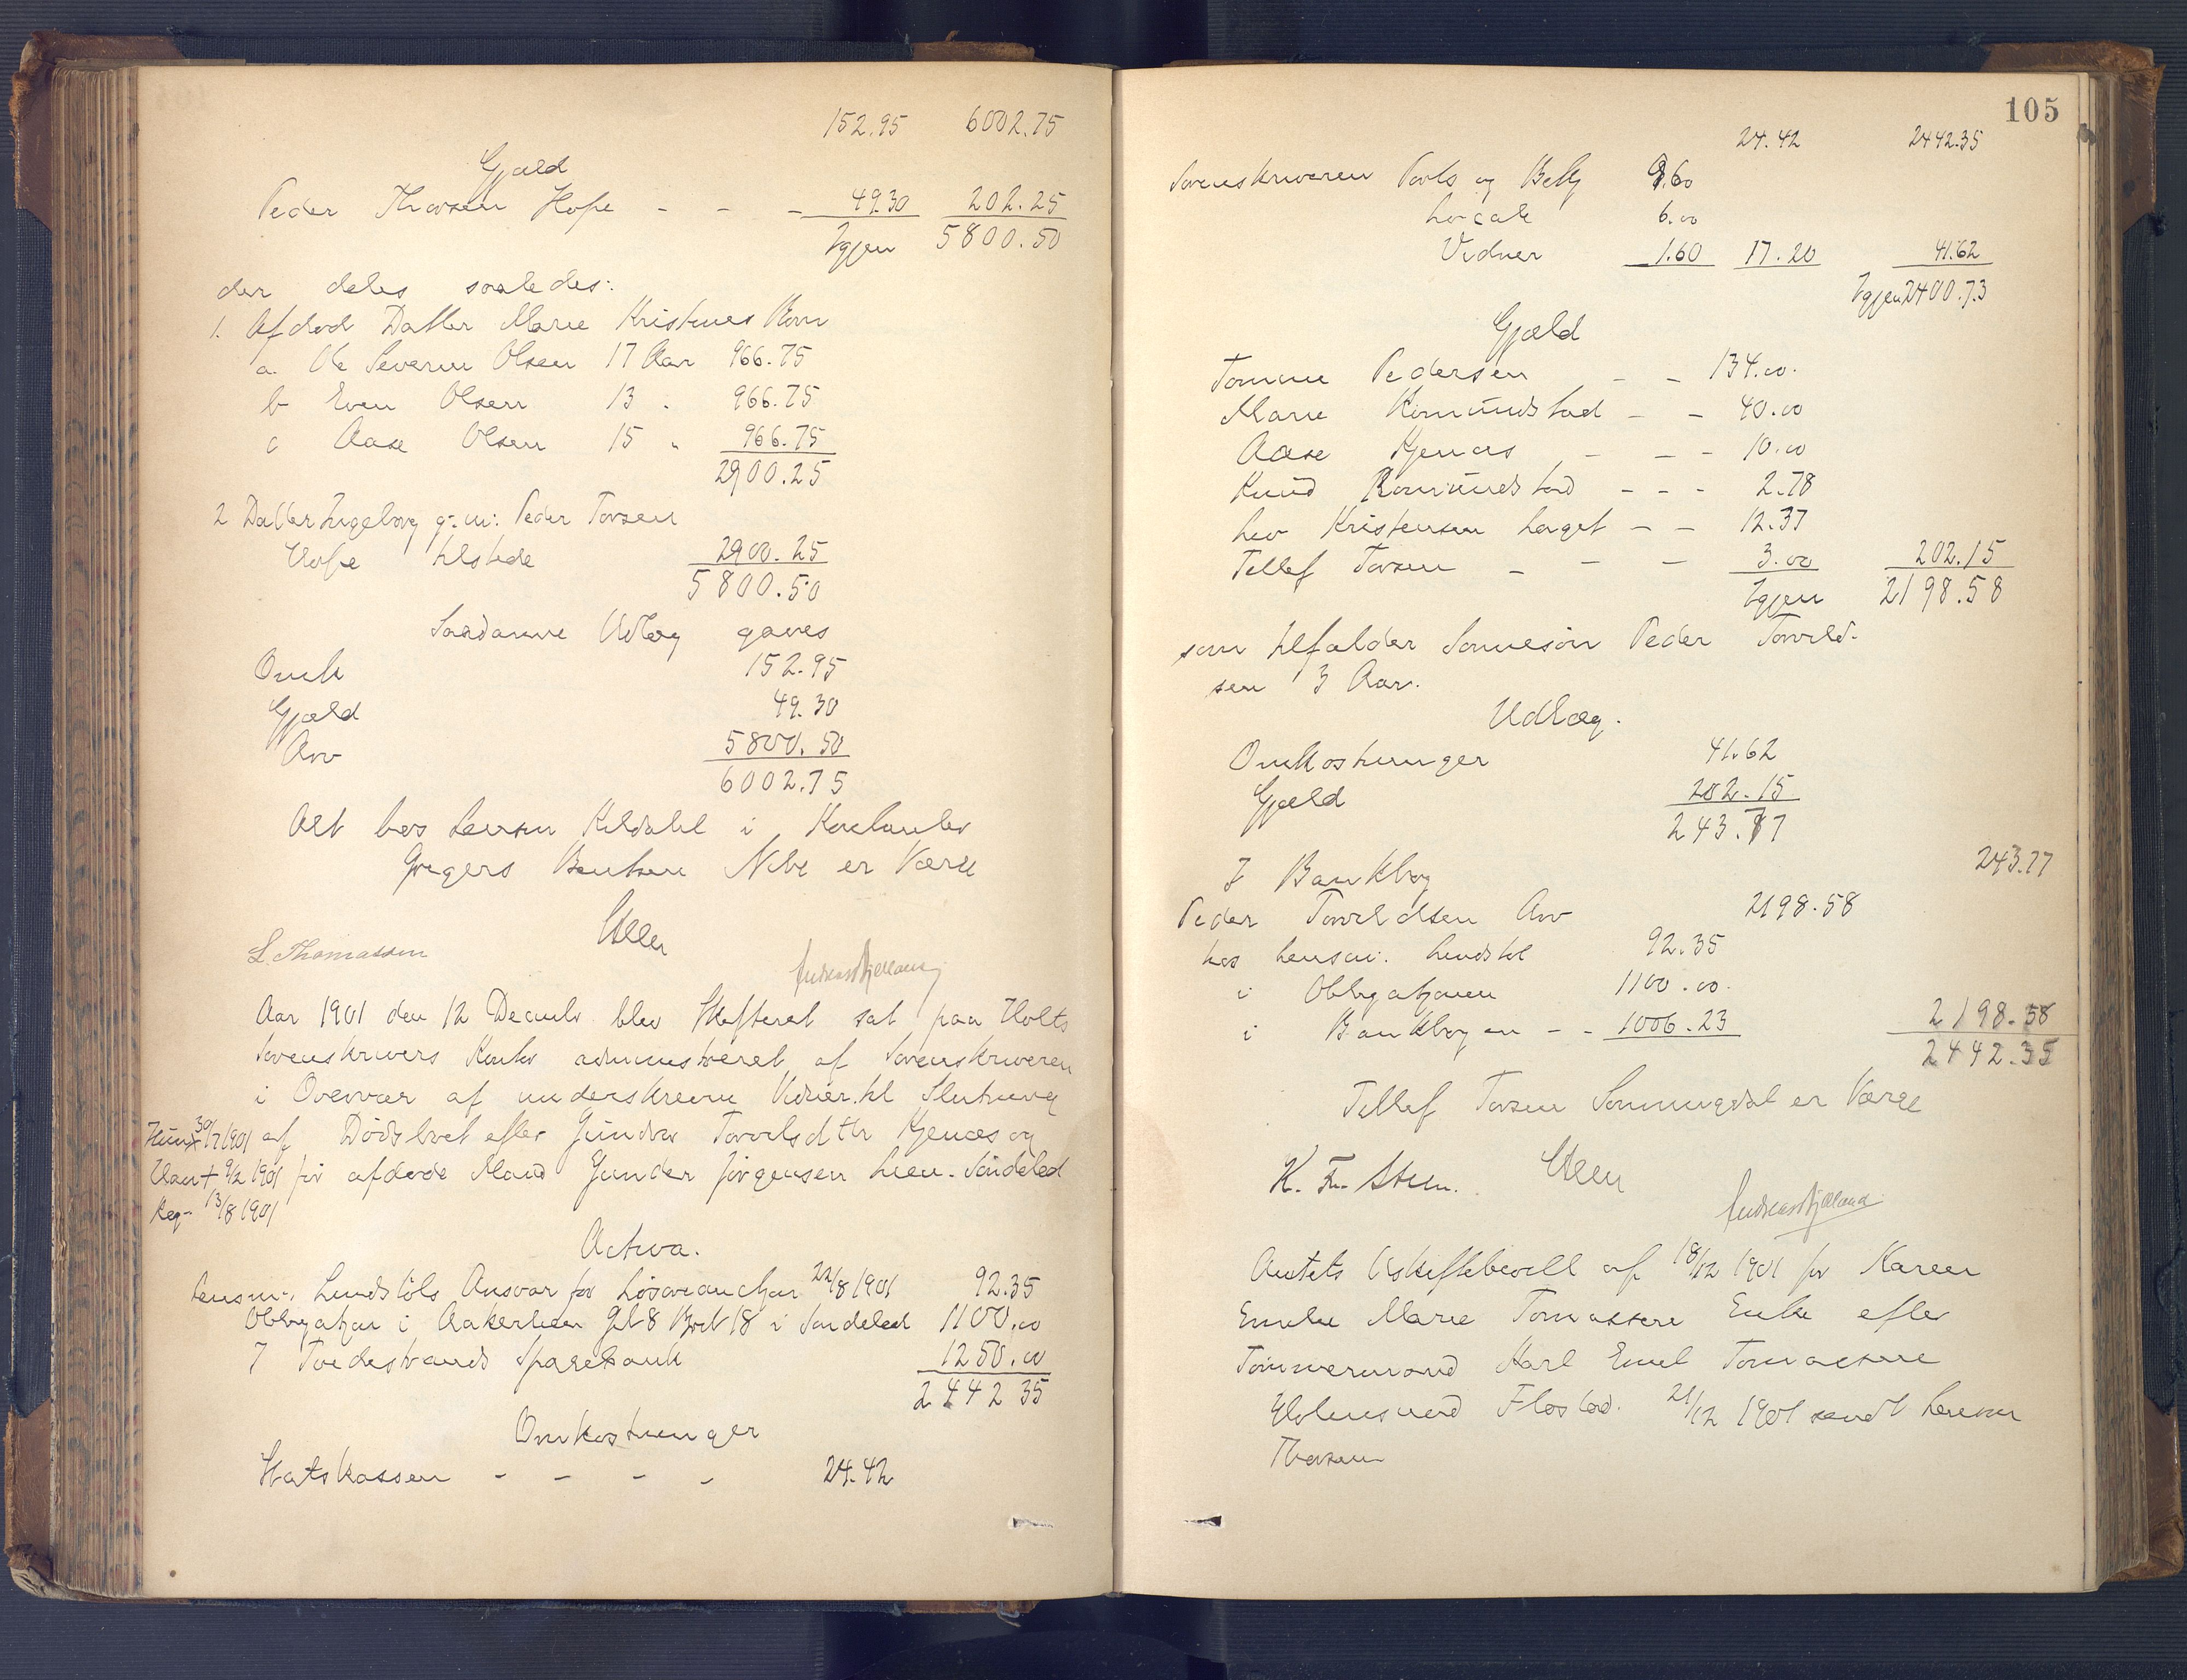 152.95 6002.75
Gjæld
Peder Thorsen Hope - - - 49.30 202.25
Igjen 5800.50
der deles saaledes:
1. Afdød Datter Marie Kristines Børn
a. Ole Severin Olsen 17 Aar 966.75
b Even Olsen 13 " 966.75
c Aase Olsen 15 " 966.75
2900.25
2 Datter Ingeborg g.m. Peder Torsen
Hope tilstede 2900.25
5800.50
Saadanne Udlæg gaves
Omk 152.95
Gjæld 49.30
Arv 5800.50
6002.75
Alt hos Lensm Kildahl i
Gregers Bentsen Nebe er Værge
L. Thomassen
Aar 1901 den 12 Decmbr blev Skifteret sat paa Holts
Sorenskrivers Kontor administreret af Sorenskriveren
i Overvær af underskrevne Vidner til Slutning
Hun + 30/7 1901 af Dødsboet efter Gunder Torvilsdtr Kjenes og
Han + 9/2 1901 før afdøde Mand Gunder Jørgensen Leen. Søndeled
Reg. 13/8 1901
Activa.
Lensm. Lundstøls Ansvar for Løsøreauction 22/8 1901 92.35
Obligation i Aakerleen Gb 8 Bnt 18 i Søndeled 1100.00
I Tvedestrands Sparebank 1250.00
2442 35
Omkostninger
Statskassen - - - - 24.42
105
24.42 2442.35
Sorenskriveren Porto og Bekj 9.60
Locale 6.00
Vidner 1.60 17.20 41.62
Igjen 2400.73
Gjæld
Tomine Pedersen - - 134.00.
Marie Romundstad - - 40.00
Aase Kjenes - - - 10.00
Knud Romundstad - - - 2.78
Lev Kristensen Langet - - 12.37
Tellef Torsen - - - 3.00 202.15
Igjen 2198.58
som tilfalder Sønnesøn Peder Torvild-
sen 3 Aar.
Udlæg.
Omkostninger 41.62
Gjæld 202.15
243.77
I Bankbog 243.77
Peder Torvildsen Arv 2198.58
hos Lensm. Lundstøl 92.35
i Obligationen 1100.00.
i Bankbogen - - 1006.23 2198.58
2442.35
Tellef Torsen Sønningdal er Værge
K. Fr. Steen.
Amtets Uskiftebevill af 18/12 1901 for Karen
Emilie Marie Tomassen Enke efter
Tømmermand Karl Emil Tomassen
Holmesund Flostad. 21/12 1901 sendt Lensm
Thorsen